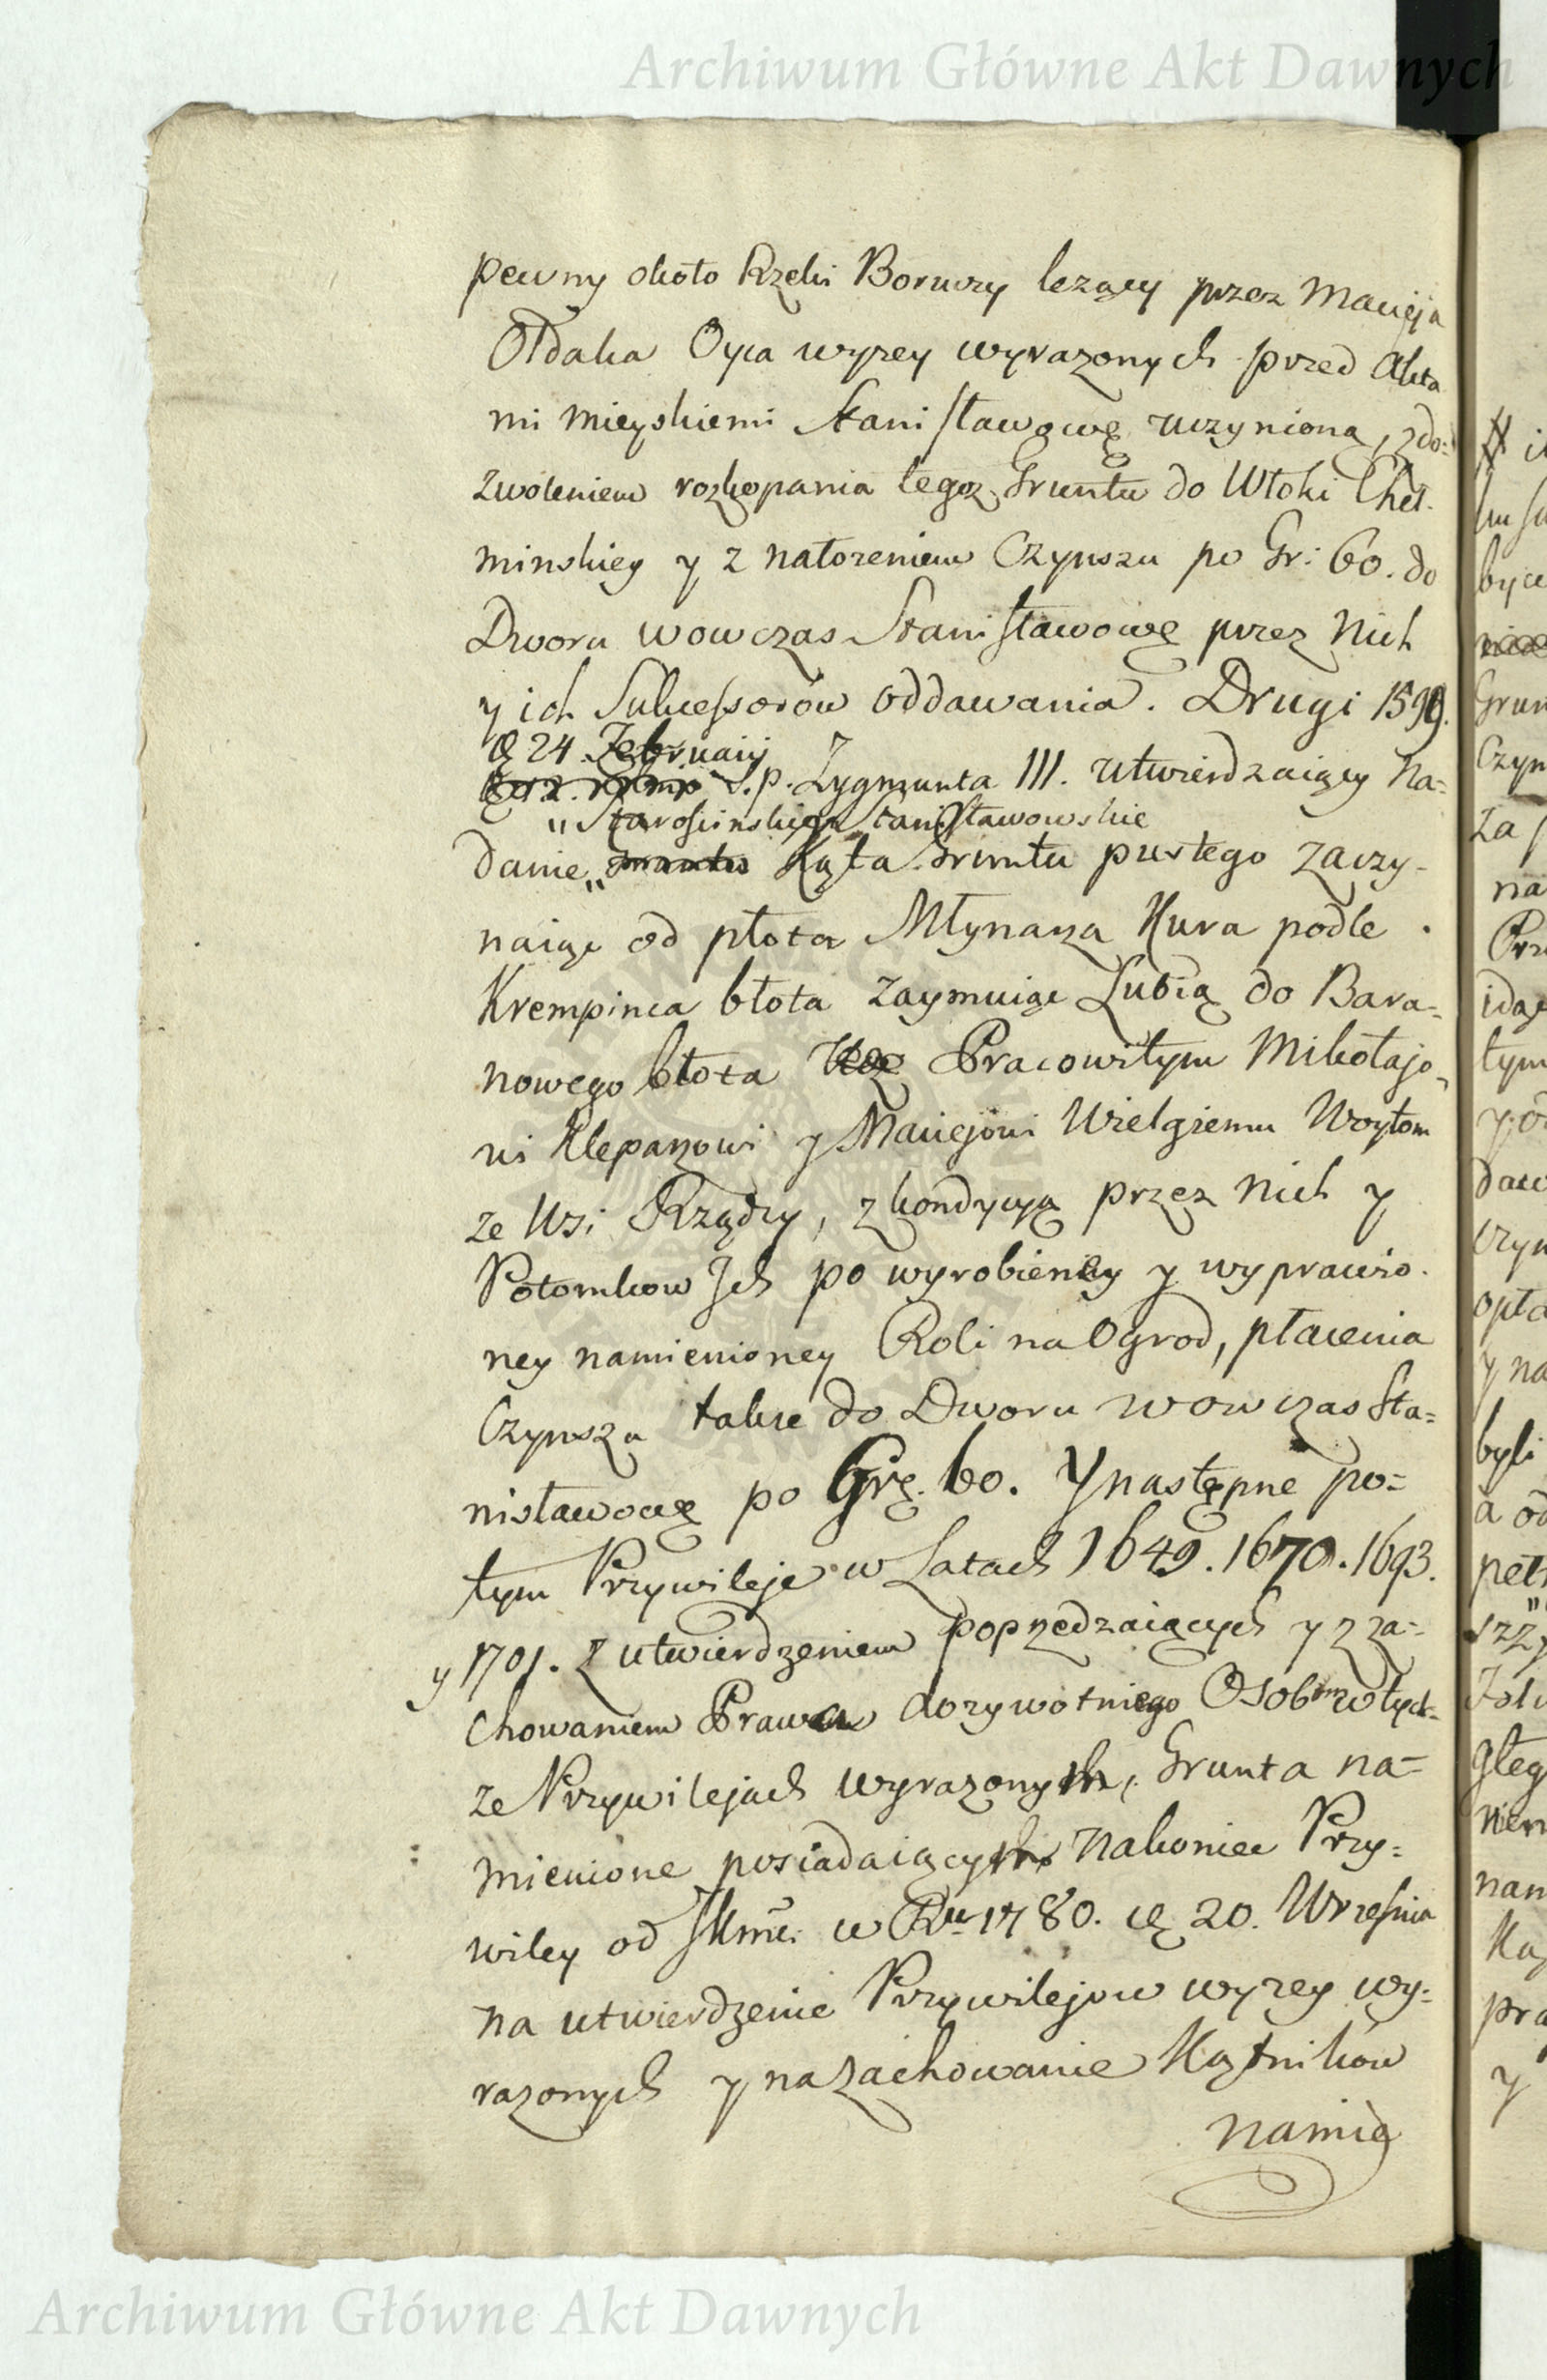 Archiwum Główne Akt Dawnych
pewny około Rzeki Boruczy lezący przez Macieja
Ołdaka Oyca wyzey wyrazonych przed Akta
mi Mieyskiemi Stanisławowę uczynioną, z do-
zwoleniem rozkopania tegoz Gruntu do Włoki Cheł-
minskiey y z nałozeniem Czynszu po Gr: 60. do
Dworu wowczas Stanisławowę przez Nich
y ich Sukcessorów oddawania. Drugi 1599.
Ꝗ 24 Februarij
S. p. Zygmunta III. utwierdzaiący Na-
" Starościńskie Stanisławowskie
danie " Kąta Gruntu pustego zaczy-
naiąc od płota Młynarza Kura podle
Krempinca błota zaymuiąc Lubią do Bara-
nowego błota Pracowitym Mikołajo-
wi Klepaczowi y Maciejowi Wielgiemu Woytom
ze Wsi Rządzy, z kondycyą przez Nich y
Potomkow Ich po wyrobieniey y wyprawio-
ney namienioney Roli na Ogrod, płacenia
Czynszu takze do Dworu wowczas Sta-
nisławowę po Grę. 60. Y następne po-
tym Przywileje w Latach 1649. 1670. 1693.
y 1701. z utwierdzeniem poprzedzaiących y z za-
chowaniem Prawa dozywotniego Osobom w tych-
ze Przywilejach wyrazonym, Grunta na-
mienione posiadaiącym Nakoniec Przy-
wiley od JKmci w Rku 1780. ꝗ 20. Wrzesnia
na utwierdzenie Przywilejow wyzey wy-
razonych y na zachowanie Kątnikow
namie
Archiwum Główne Akt Dawnych